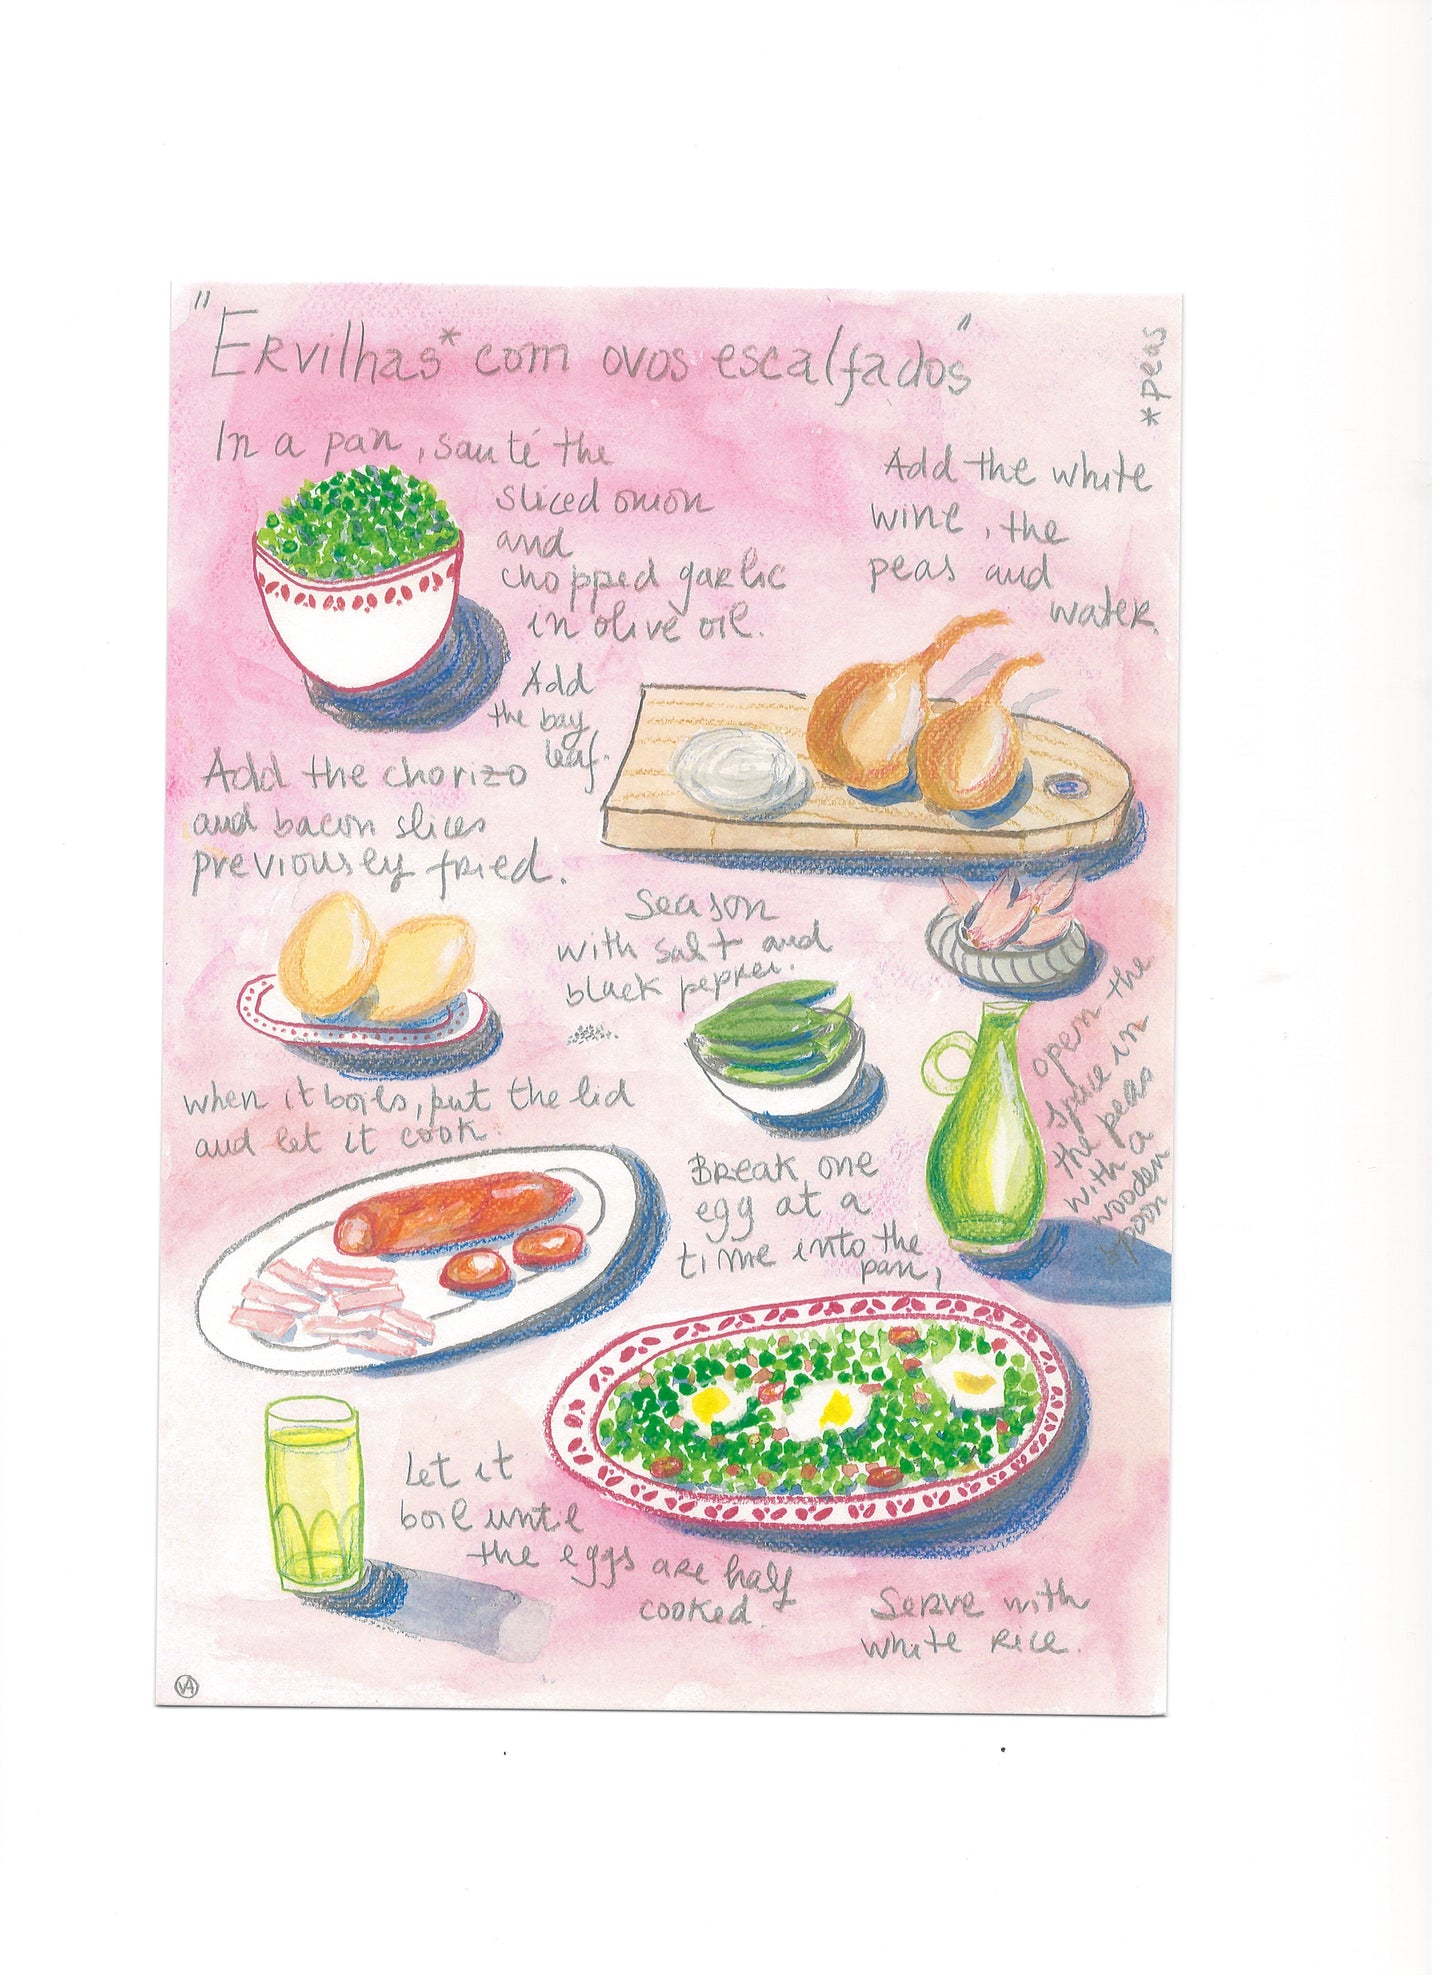 "Ervilhas* com ovos escalfados"
*peas
In a pan, sauté the
sliced onion
and
chopped garlic
in olive oil.
Add
the bay
leaf.
Add the white
wine, the
peas and
water.
Add the chorizo
and bacon slices
previously fried.
Season
with salt and
black pepper.
when it boils, put the lid
and let it cook.
Break one
egg at a
time into the
pan,
open the
space in
the peas
with a
wooden
spoon
Let it
boil until
the eggs are half
cooked.
Serve with
white rice.
VA